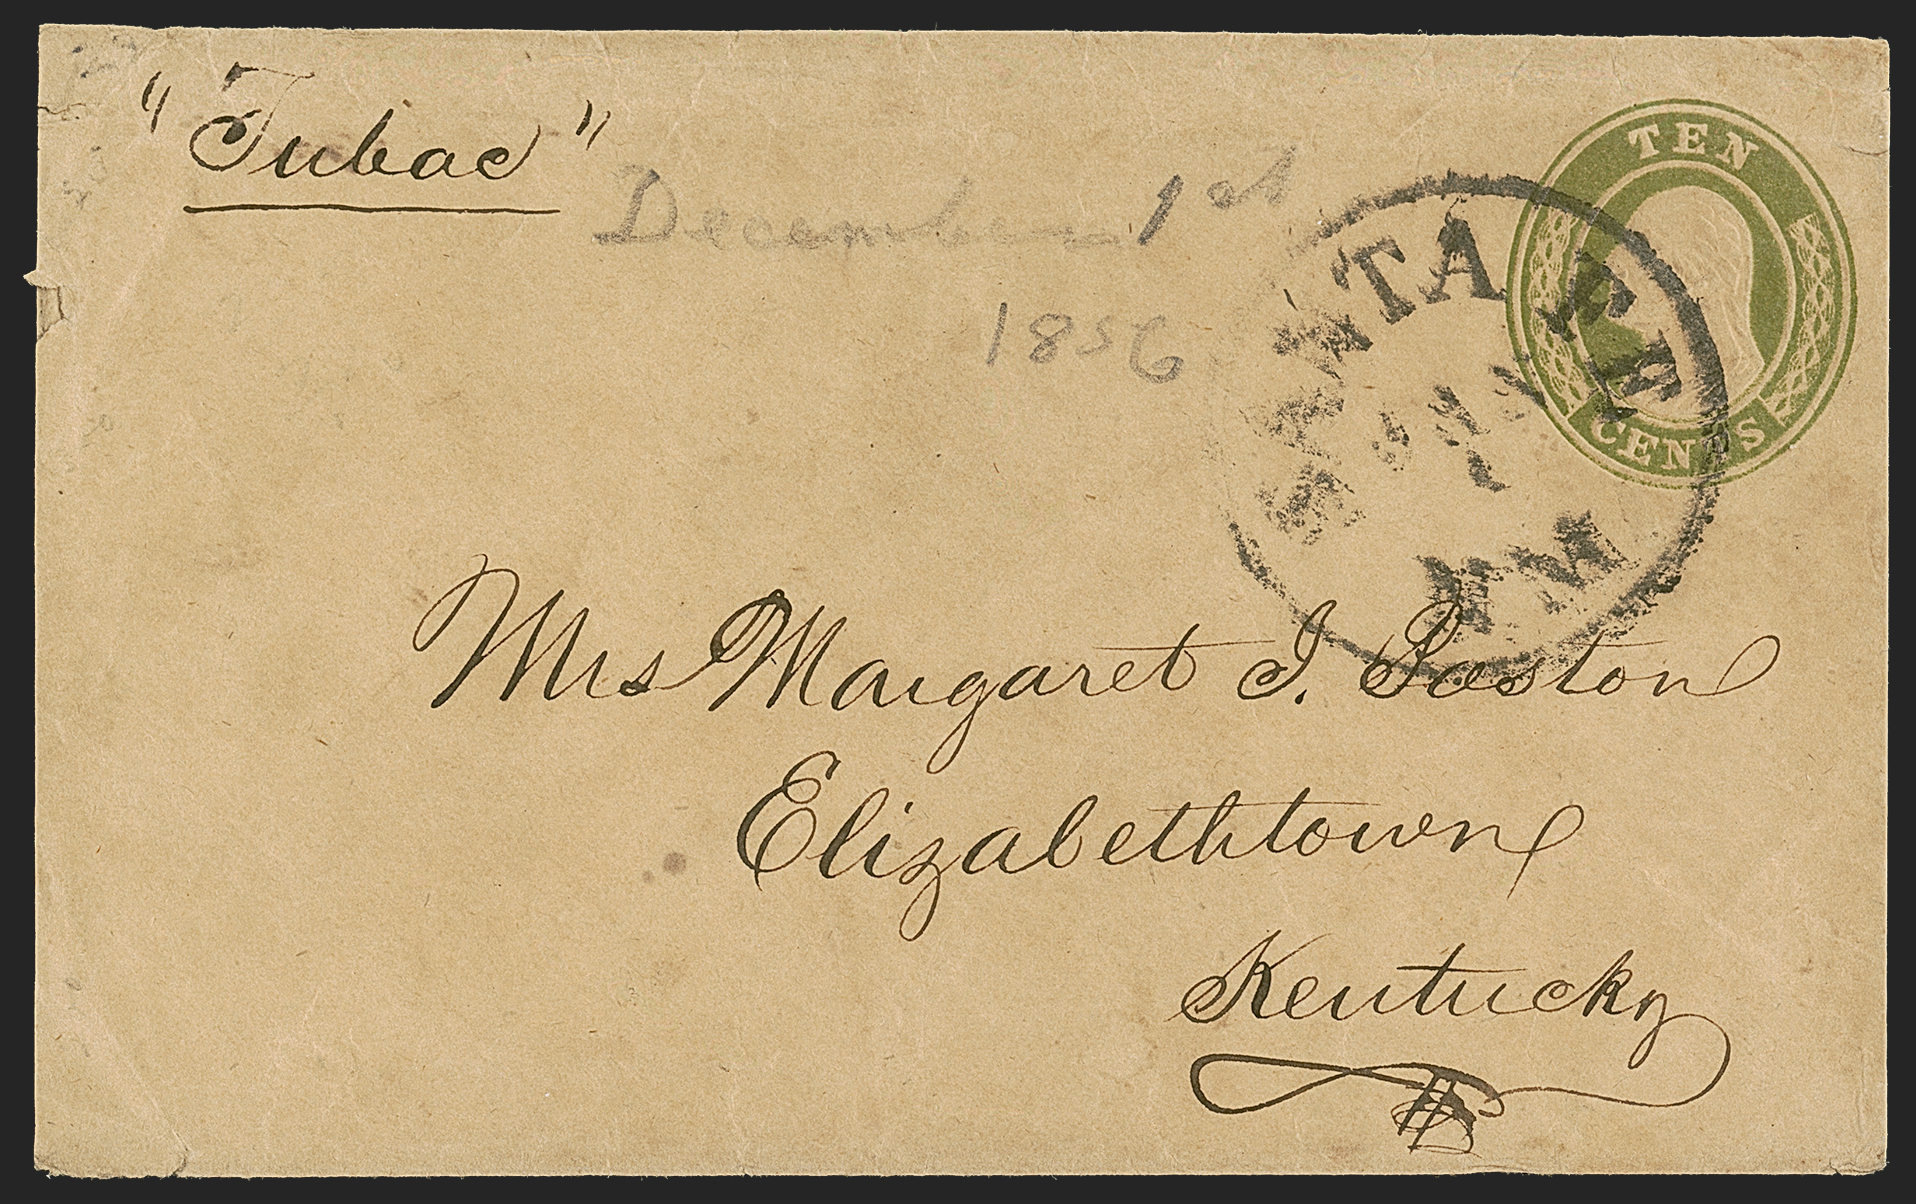 "Tubac"
December 1st
1856
TEN
CENTS
SANTA FE
JAN
1
N.M.
Mrs Margaret I. Poston
Elizabethtown
Kentucky